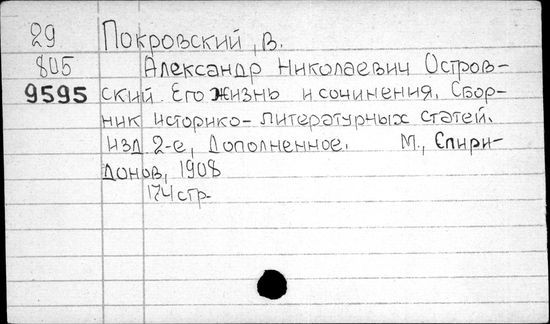 29 Покровский, В.
805 Александр Николаевич Остров-
9595 ский. Его жизнь и сочинения. Сбор-
ник историко-литературных статей.
Изд 2-е, Дополненное. М., Спири-
донов, 1908
174 стр.